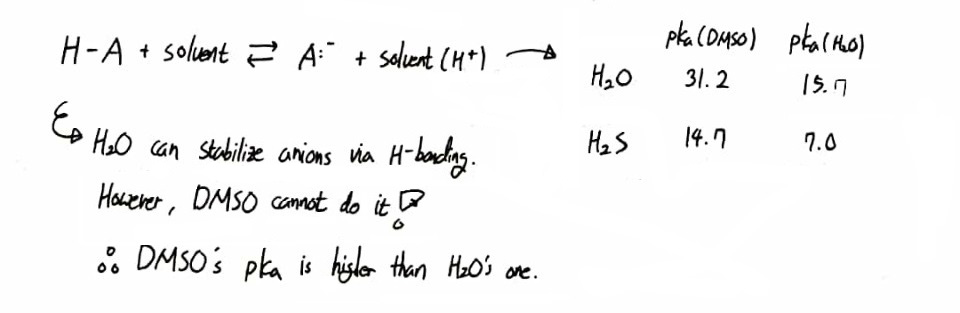 H-A + solvent ⇄ A:⁻ + solvent (H⁺) →
pka (DMSO) pka (H₂O)
H₂O 31.2 15.7
H₂S 14.7 7.0
↳ H₂O can stabilize anions via H-bonding.
However, DMSO cannot do it!
∴ DMSO's pka is higher than H₂O's one.